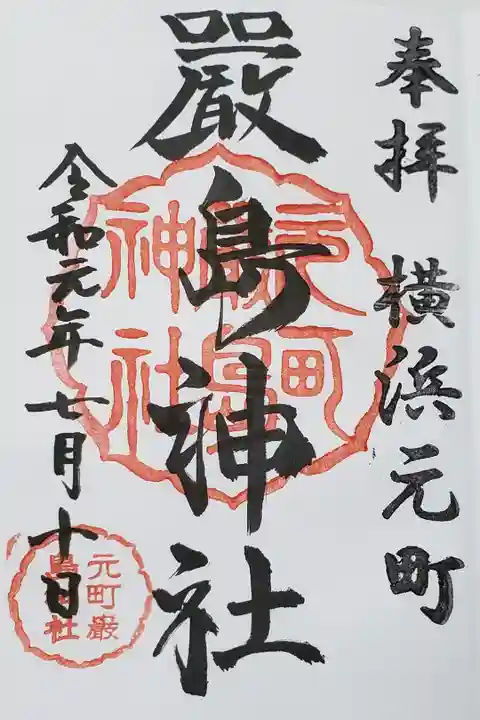 奉拝 横浜元町
嚴島神社
令和元年七月十日
元町
嚴島
神社
元町嚴
島神
社